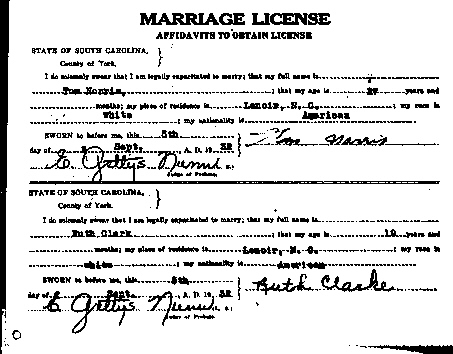 MARRIAGE LICENSE
AFFIDAVITS TO OBTAIN LICENSE
STATE OF SOUTH CAROLINA,
County of York.
I do solemnly swear that I am legally capacitated to marry; that my full name is
Tom Norris, ; that my age is 27 years and
months; my place of residence is Lenoir, N. C. ; my race is
White ; my nationality is American
SWORN to before me, this 5th
day of Sept. , A. D. 19 32
Tom Norris
E. Gettys Nunn
Judge of Probate.
STATE OF SOUTH CAROLINA,
County of York.
I do solemnly swear that I am legally capacitated to marry; that my full name is
Ruth Clark ; that my age is 19 years and
months; my place of residence is Lenoir, N. C. ; my race
is white ; my nationality is American
SWORN to before me, this 5th
day of Sept. , A. D. 19 32
Ruth Clarke
E. Gettys Nunn
Judge of Probate.